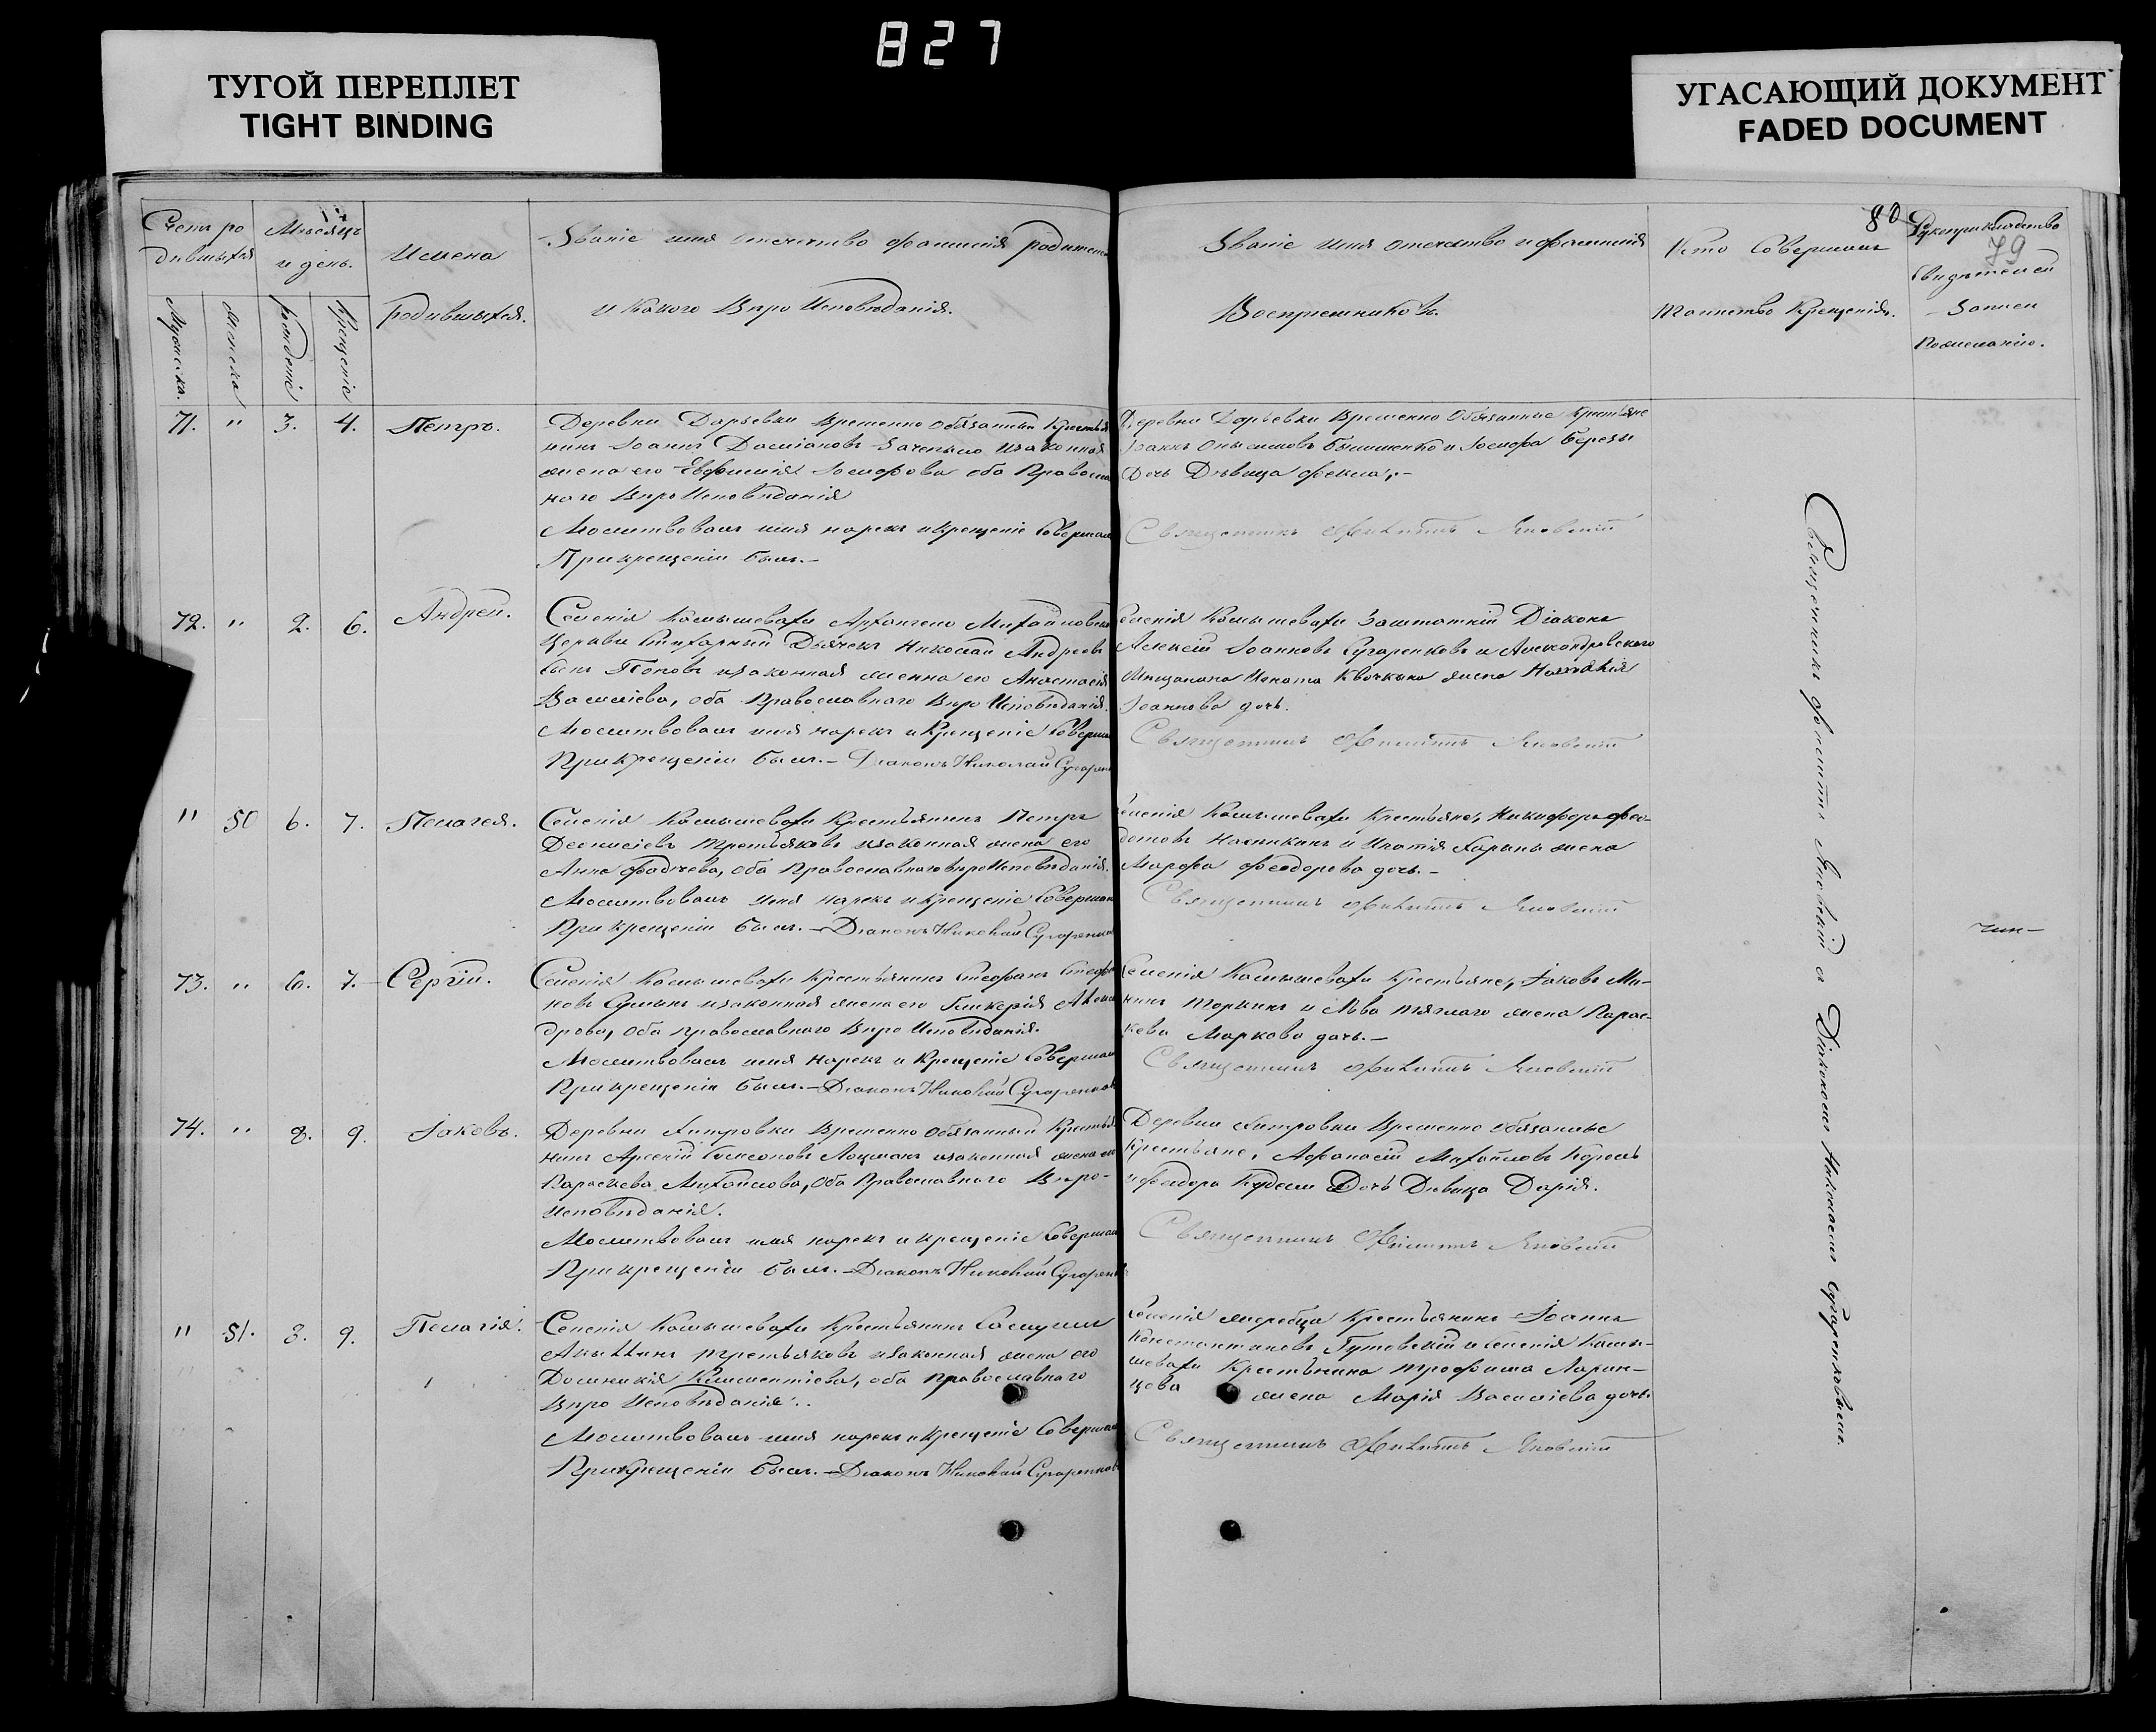 827
ТУГОЙ ПЕРЕПЛЕТ
TIGHT BINDING
УГАСАЮЩИЙ ДОКУМЕНТ
FADED DOCUMENT
80
79
Счетъ ро
дившихся
Мѣсяцъ
и день.
Имена
родившихся.
Званіе имя отечество фамилія родителей
и какого Вѣроисповѣданія.
Мужеска.
женска
рожденіе
крещеніе
Званіе имя отечество и фамилія
Воспріемниковъ.
Кто Совершалъ
таинство Крещенія.
Рукоприкладство
свидѣтелей
записи
по желанію.
71. " 3. 4. Петръ.
Деревни Дарьевки временно обязанный крестья
нинъ Іоаннъ Даміановъ изаконная
жена его Евфимія Іосифова оба Православ
наго Вѣроисповѣданія
Молитвовалъ имя нарекъ и крещеніе Совершалъ
При крещеніи былъ.–
Деревни Дарьевки временно обязанные крестьяне
Іоаннъ Онисимовъ и Іосифа Березы
Дочь Дѣвица Фекла.–
Священникъ Яновскій
72. " 2. 6. Андрей.
Селенія Камышевахи Архангело Михайловской
Церкви стихарный Дьячекъ Николай Андреевъ
сынъ Поповъ изаконная жена его Анастасія
Василіева, оба Православнаго Вѣроисповѣданія.
Молитвовалъ имя нарекъ и Крещеніе Соверша
При крещеніи былъ.– Діаконъ Николай Сугарен
Селенія Камышевахи Заштатній Діаконъ
Алексій Іоанновъ Сугаренковъ и Александровскаго
Мѣщанина Игната жена Наталія
Іоаннова дочь.
Священникъ Яновскій
" 50 6. 7. Пелагея.
Селенія Камышевахи Крестьянинъ Петръ
Деонисіевъ Третьяковъ изаконная жена его
Анна Фадѣева, оба Православнаго вѣроисповѣданія.
Молитвовалъ имя нарекъ и крещеніе Совершалъ
При крещеніи былъ.– Діаконъ Николай Сугаренко
Селенія Камышевахи Крестьяне, Никифоръ Фео-
дотовъ и Игнатія жена
Марфа Феодорова дочь.–
Священникъ Яновскій
73. " 6. 7. Сергій.
Селенія Камышевахи Крестьянинъ Стефанъ Стефа
новъ изаконная жена его Гликерія Алекса
дрова, оба православнаго Вѣроисповѣданія.
Молитвовалъ имя нарекъ и Крещеніе Совершалъ
При крещеніи былъ.– Діаконъ Николай Сугаренков
Селенія Камышевахи Крестьяне, Іаковъ Ми-
нинъ и Льва жена Парас-
кева Маркова дочь.–
Священникъ Яновскій
74. " 8. 9. Іаковъ.
Деревни Хитровки Временно обязанный Крестья
нинъ Арсеній Лоцманъ изаконная жена его
Параскева Михайлова, оба Православнаго Вѣро-
исповѣданія.
Молитвовалъ имя нарекъ и крещеніе Совершал
При крещеніи былъ.– Діаконъ Николай Сугаренк
Деревни Хитровки Временно обязанные
Крестьяне, Афанасій Михайловъ Король
и Феодора Дочь Дѣвица Дарія.
Священникъ Яновскій
" 51. 8. 9. Пелагія.
Селенія Камышевахи Крестьянинъ Самуилъ
Третьяковъ изаконная жена его
Домникія Климентіева, оба православнаго
Вѣроисповѣданія.
Молитвовалъ имя нарекъ и крещеніе Совершал
При крещеніи былъ.– Діаконъ Николай Сугаренков
Селенія Жеребца Крестьянинъ Іоаннъ
Константиновъ Гутовскій и Селенія Камы-
шевахи Крестьянина Трофима Ларин-
цова жена Марія Василіева дочь.
Священникъ Яновскій
Священникъ Яновскій съ Діакономъ Николаемъ Сугаренковымъ.